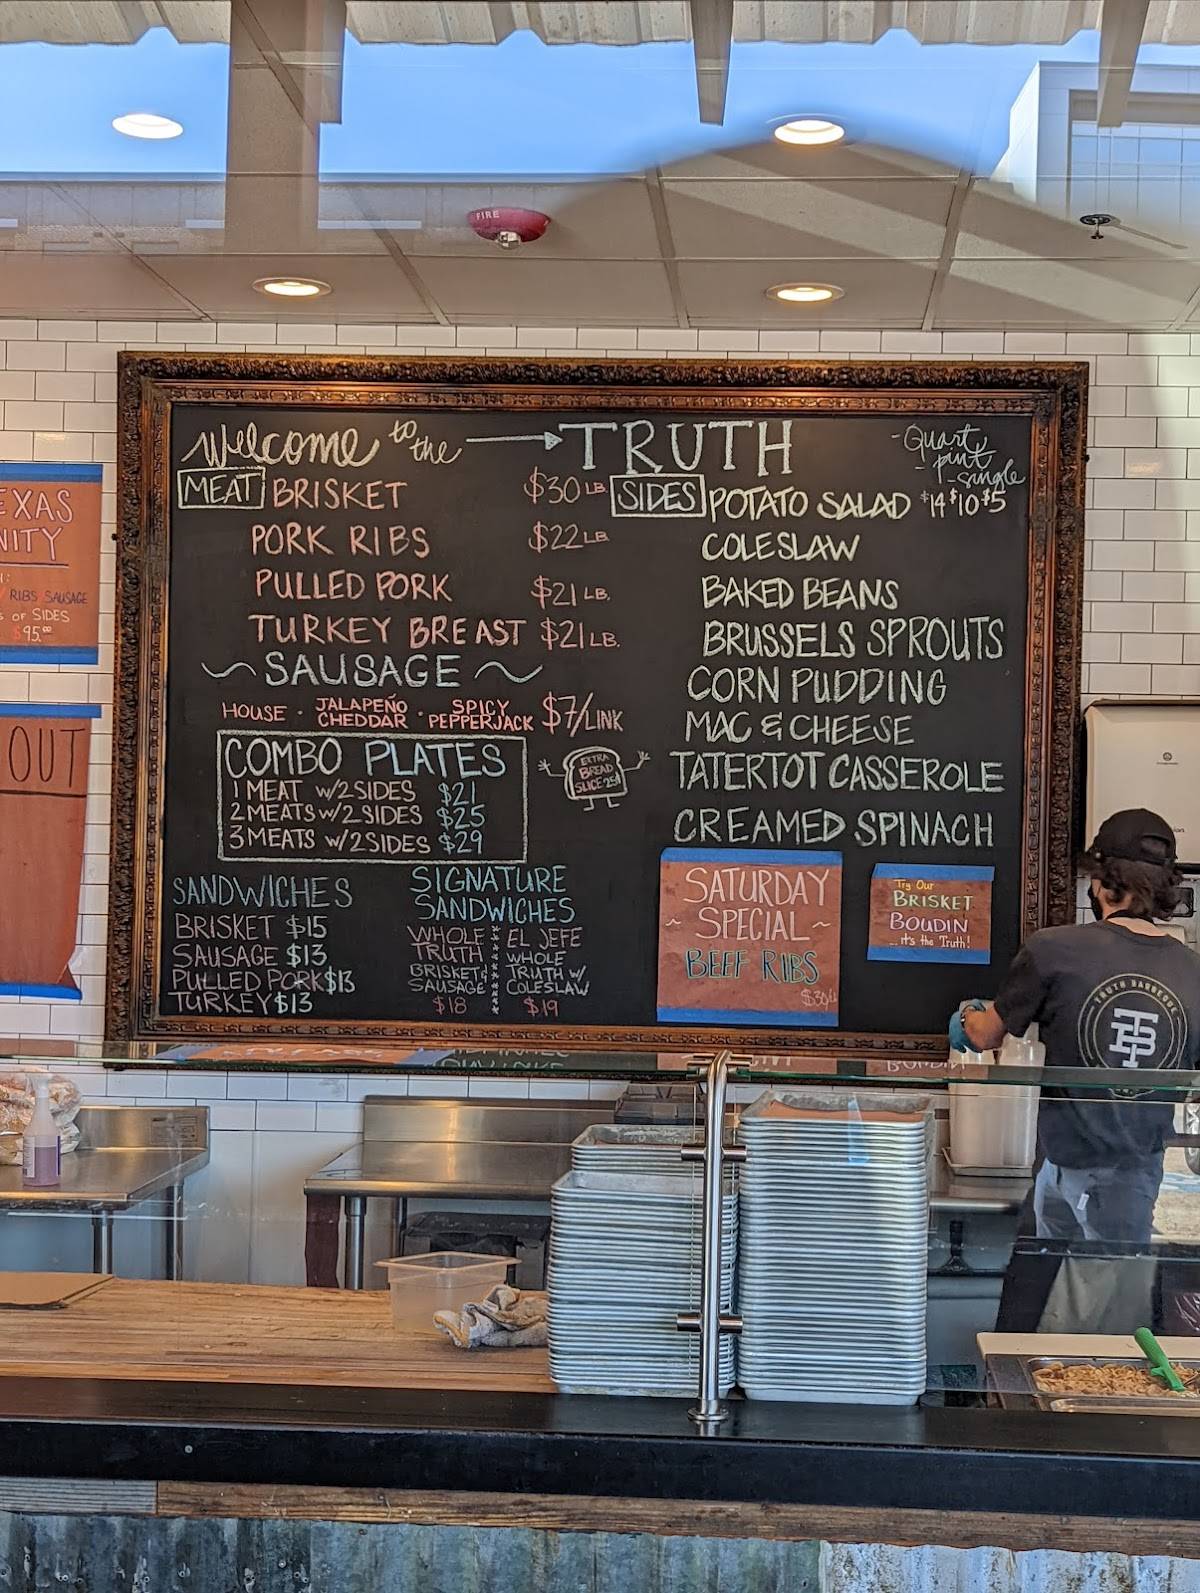 FIRE
Welcome to the → TRUTH
- Quart, - pint - single
MEAT BRISKET $30 LB
PORK RIBS $22 LB
PULLED PORK $21 LB.
TURKEY BREAST $21 LB.
~ SAUSAGE ~
HOUSE · JALAPEÑO CHEDDAR · SPICY PEPPERJACK $7/LINK
COMBO PLATES
1 MEAT W/2 SIDES $21
2 MEATS W/2 SIDES $25
3 MEATS W/2 SIDES $29
EXTRA
BREAD
SLICE 25¢
SANDWICHES
BRISKET $15
SAUSAGE $13
PULLED PORK $13
TURKEY $13
SIGNATURE
SANDWICHES
WHOLE
TRUTH
BRISKET &
SAUSAGE
$18
EL JEFE
WHOLE
TRUTH W/
COLESLAW
$19
SIDES POTATO SALAD $14 $10 $5
COLESLAW
BAKED BEANS
BRUSSELS SPROUTS
CORN PUDDING
MAC & CHEESE
TATERTOT CASSEROLE
CREAMED SPINACH
SATURDAY
~ SPECIAL ~
BEEF RIBS
Try Our
BRISKET
BOUDIN
... it's the Truth!
EXAS
NITY
RIBS SAUSAGE
OF SIDES
$95.00
OUT
TRUTH BARBEQUE